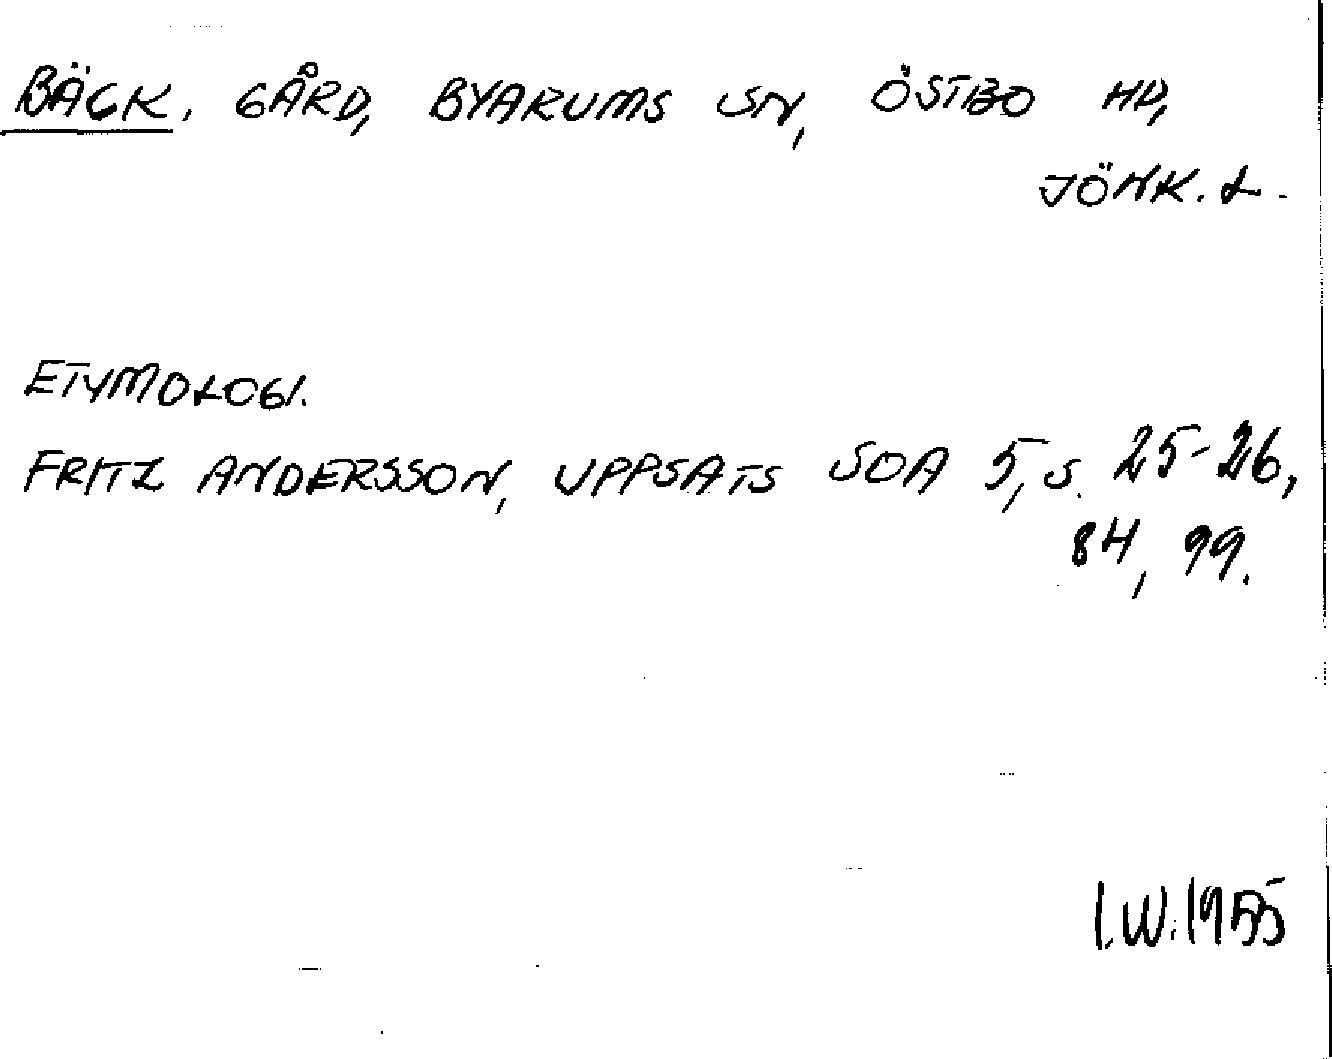 BÄCK, GÅRD, BYARUMS SN, ÖSTBO HD,
JÖNK. L.
ETYMOLOGI.
FRITZ ANDERSSON, UPPSATS SOA 5, S. 25-26,
84, 99.
I.W. 1955